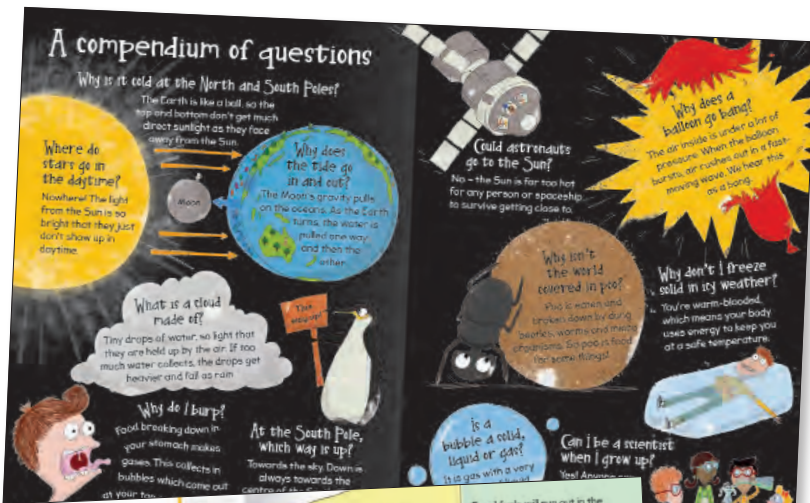 A compendium of questions
Why is it cold at the North and South Poles?
The Earth is like a ball, so the
top and bottom don't get much
direct sunlight as they face
away from the Sun.
Where do
stars go in
the daytime?
Nowhere! The light
from the Sun is so
bright that they just
don't show up in
daytime.
Moon
Why does
the tide go
in and out?
The Moon's gravity pulls
on the oceans. As the Earth
turns, the water is
pulled one way
and then the
other.
What is a cloud
made of?
Tiny drops of water, so light that
they are held up by the air. If too
much water collects, the drops get
heavier and fall as rain
This
way up!
Why do I burp?
Food breaking down in
your stomach makes
gases. This collects in
bubbles which come out
at your top
At the South Pole,
which way is up?
Towards the sky. Down is
always towards the
centre of the
Could astronauts
go to the Sun?
No – the Sun is far too hot
for any person or spaceship
to survive getting close to.
Why does a
balloon go bang?
The air inside is under a lot of
pressure. When the balloon
bursts, air rushes out in a fast-
moving wave. We hear this
as a bang.
Why isn't
the world
covered in poo?
Poo is eaten and
broken down by dung
beetles, worms and
organisms. So poo is food
for some things!
Why don't I freeze
solid in icy weather?
You're warm-blooded,
which means your body
uses energy to keep you
at a safe temperature.
Is a
bubble a solid,
liquid or gas?
It is gas with a very
Can I be a scientist
when I grow up?
Yes!